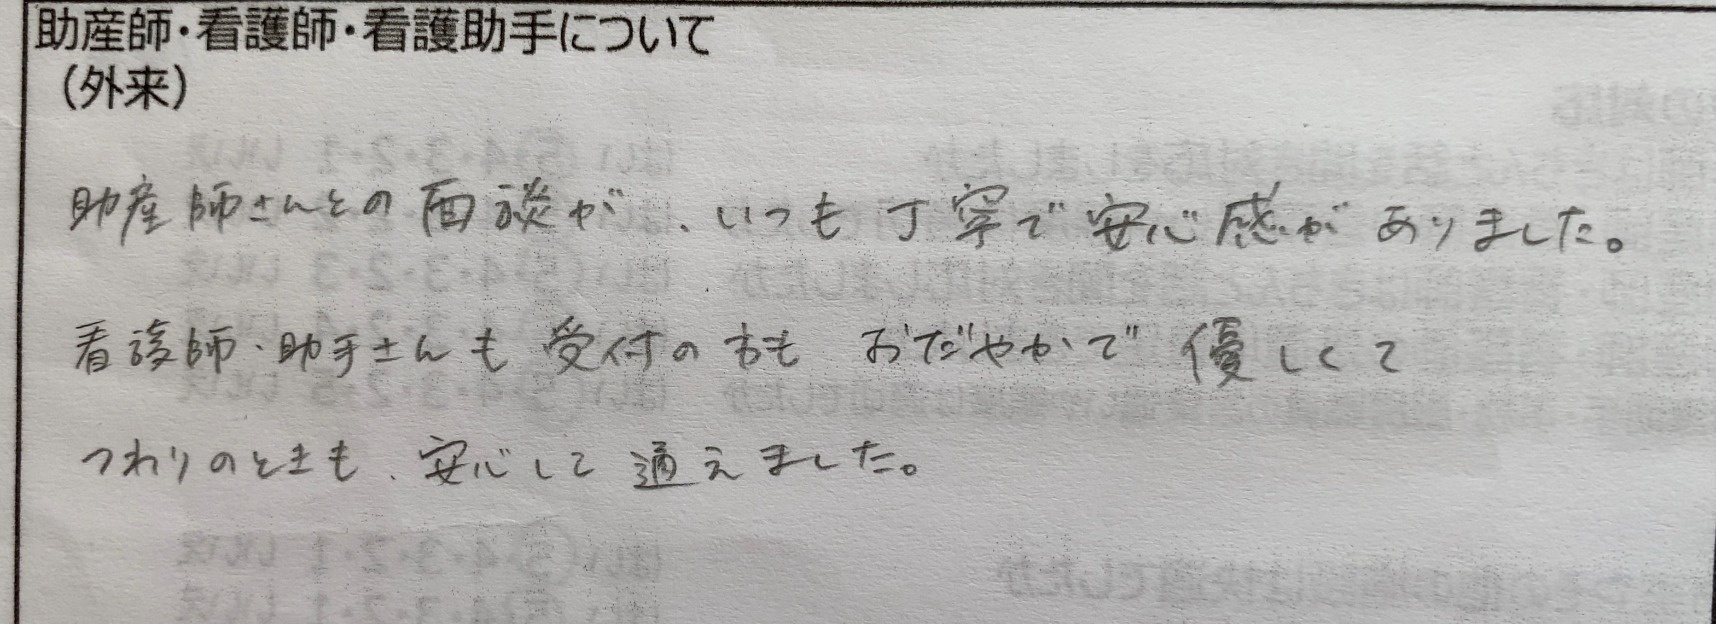 助産師・看護師・看護助手について
（外来）
助産師さんとの面談が、いつも丁寧で安心感がありました。
看護師・助手さんも受付の方もおだやかで優しくて
つわりのときも、安心して通えました。